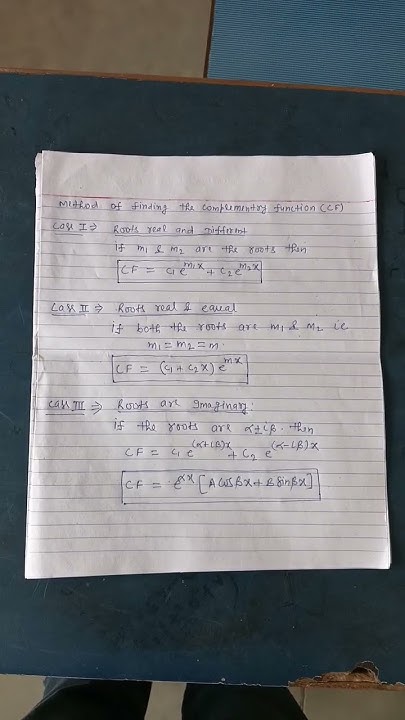 Method of finding the Complementry function (CF)
Case I ⇒ Roots real and Different
If m₁ & m₂ are the roots then
CF = c₁e^{m₁x} + c₂e^{m₂x}
Case II ⇒ Roots real & equal
if both the roots are m₁ & m₂ ie
m₁ = m₂ = m.
CF = (c₁ + c₂x) e^{mx}
Case III ⇒ Roots are Imaginary:
if the roots are α±iβ. then
CF = c₁ e^{(α+iβ)x} + c₂ e^{(α-iβ)x}
CF = e^{αx} [A cosβx + B sinβx]